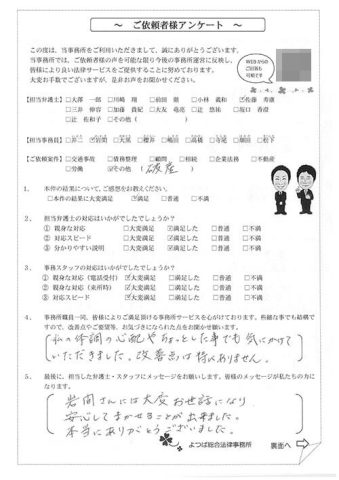 ～ ご依頼者様アンケート ～
この度は、当事務所をご利用いただきまして、誠にありがとうございます。
当事務所では、ご依頼者様の声を可能な限り今後の事務所運営に反映し、
皆様により良い法律サービスをご提供することに努めております。
大変お手数でございますが、是非お声をお聞かせください。
WEBからの
ご回答も
可能です
【担当弁護士】 □大澤 一郎 □川崎 翔 □前田 徹 □小林 義和 ☑佐藤 寿康
□三井 伸容 □加藤 貴紀 □大友 竜亮 □辻 悠祐 □坂口 香澄
□辻 佐和子 □その他（ ）
【担当事務員】 □一二 ☑岩間 □大黒 □櫻井 □嶋 □高橋 □寺尾 □細田 □松下
【ご依頼案件】 □交通事故 □債務整理 □顧問 □相続 □企業法務 □不動産
□労働 ☑その他（ 破産 ）
1. 本件の結果について、ご感想をお教えください。
□本件の結果に大変満足 ☑満足 □普通 □不満
2. 担当弁護士の対応はいかがでしたでしょうか？
① 親身な対応 □大変満足 ☑満足した □普通 □不満
② 対応スピード □大変満足 ☑満足した □普通 □不満
③ 分かりやすい説明 □大変満足 ☑満足した □普通 □不満
3. 事務スタッフの対応はいかがでしたでしょうか？
① 親身な対応（電話受付） ☑大変満足 □満足した □普通 □不満
② 親身な対応（来所時） ☑大変満足 □満足した □普通 □不満
③ 対応スピード ☑大変満足 □満足した □普通 □不満
4. 事務所職員一同、皆様によりご満足頂ける事務所サービスを心がけております。些細な事でも結構で
すので、改善点やご要望等、お気づきになられた点をお聞かせ願います。
私の体調の心配やちょっとした事でも気にかけて
いただきました。改善点は特にありません。
5. 最後に、担当した弁護士・スタッフにメッセージをお願いします。皆様のメッセージが私たちの力に
なります。
岩間さんには大変お世話になり
安心してまかせることが出来ました。
本当にありがとうございました。
よつば総合法律事務所
裏面へ